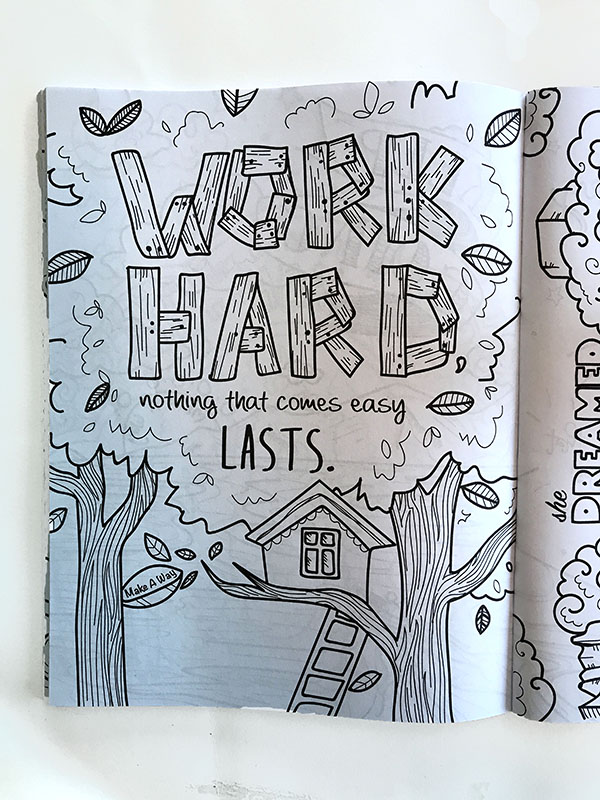 WORK
HARD,
nothing that comes easy
LASTS.
Make A Way
she
DREAMED